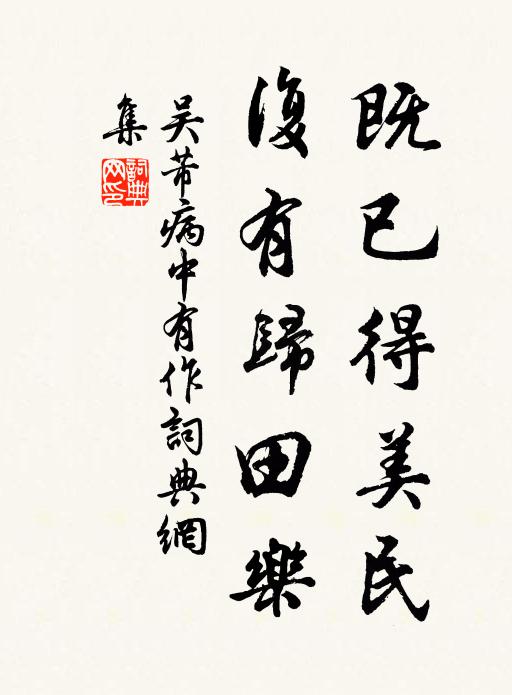 既已得美民
復有歸田樂
吴芾病中有作詞典網
集
詞典网印